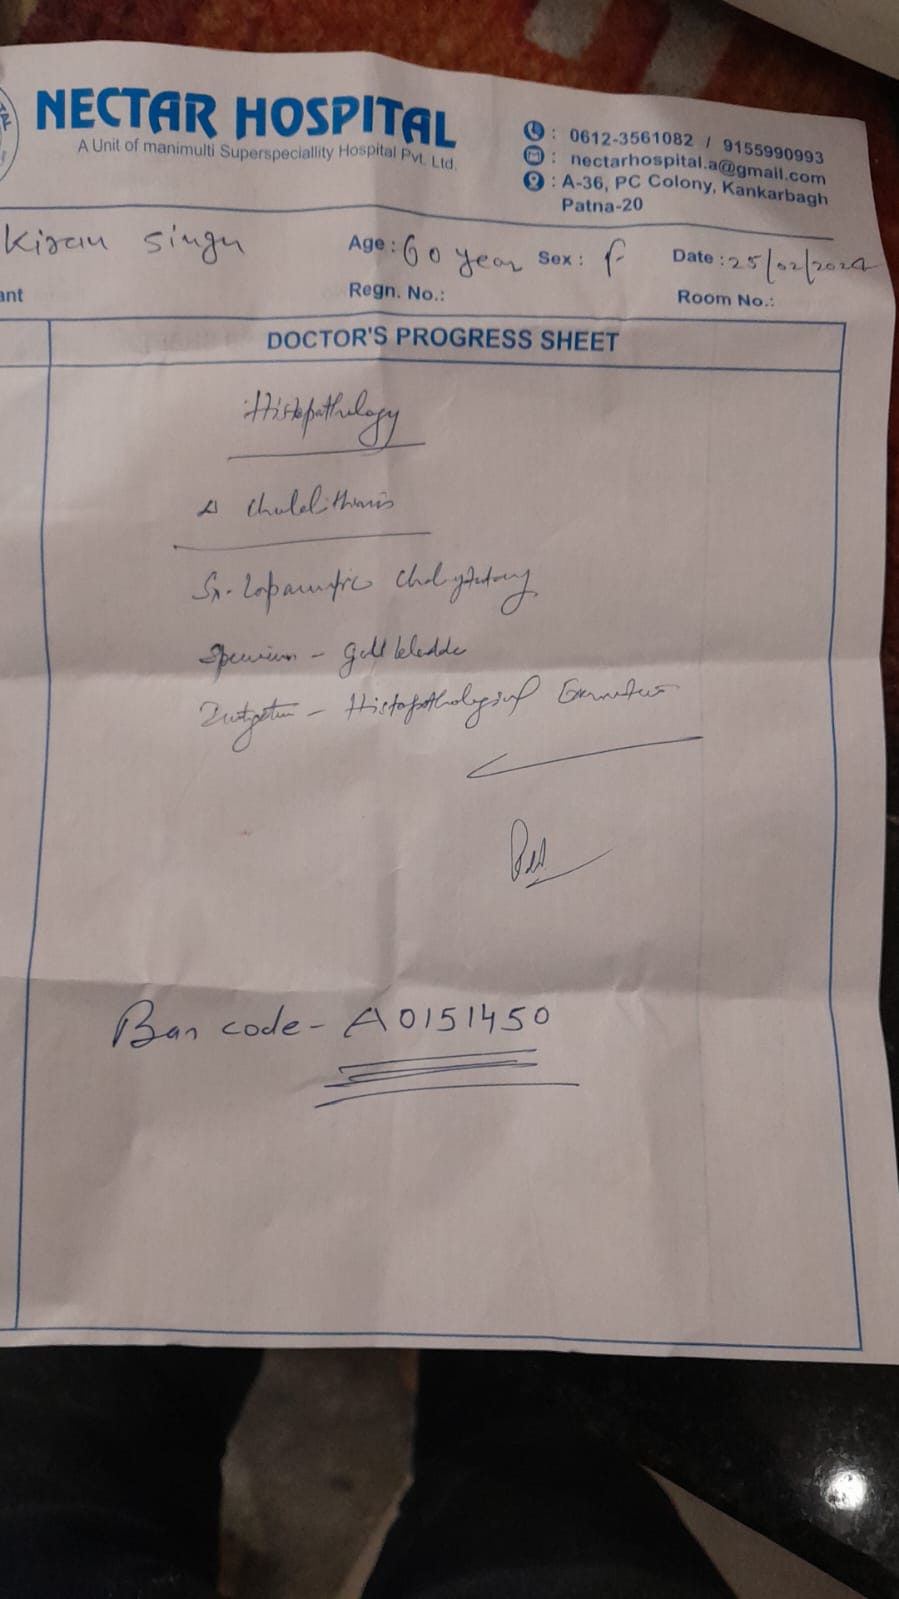 NECTAR HOSPITAL
A Unit of manimulti Superspeciallity Hospital Pvt. Ltd.
: 0612-3561082 / 9155990993
: nectarhospital.a@gmail.com
: A-36, PC Colony, Kankarbagh
Patna-20
Kiran Singh Age : 60 year Sex : F Date : 25/02/2024
ant Regn. No.: Room No.:
DOCTOR'S PROGRESS SHEET
Histopathology
Δ Cholelithiasis
Sx. Laparoscopic Cholecystectomy
Specimen - gall bladder
Investigation - Histopathological Examination
Bar code - A0151450